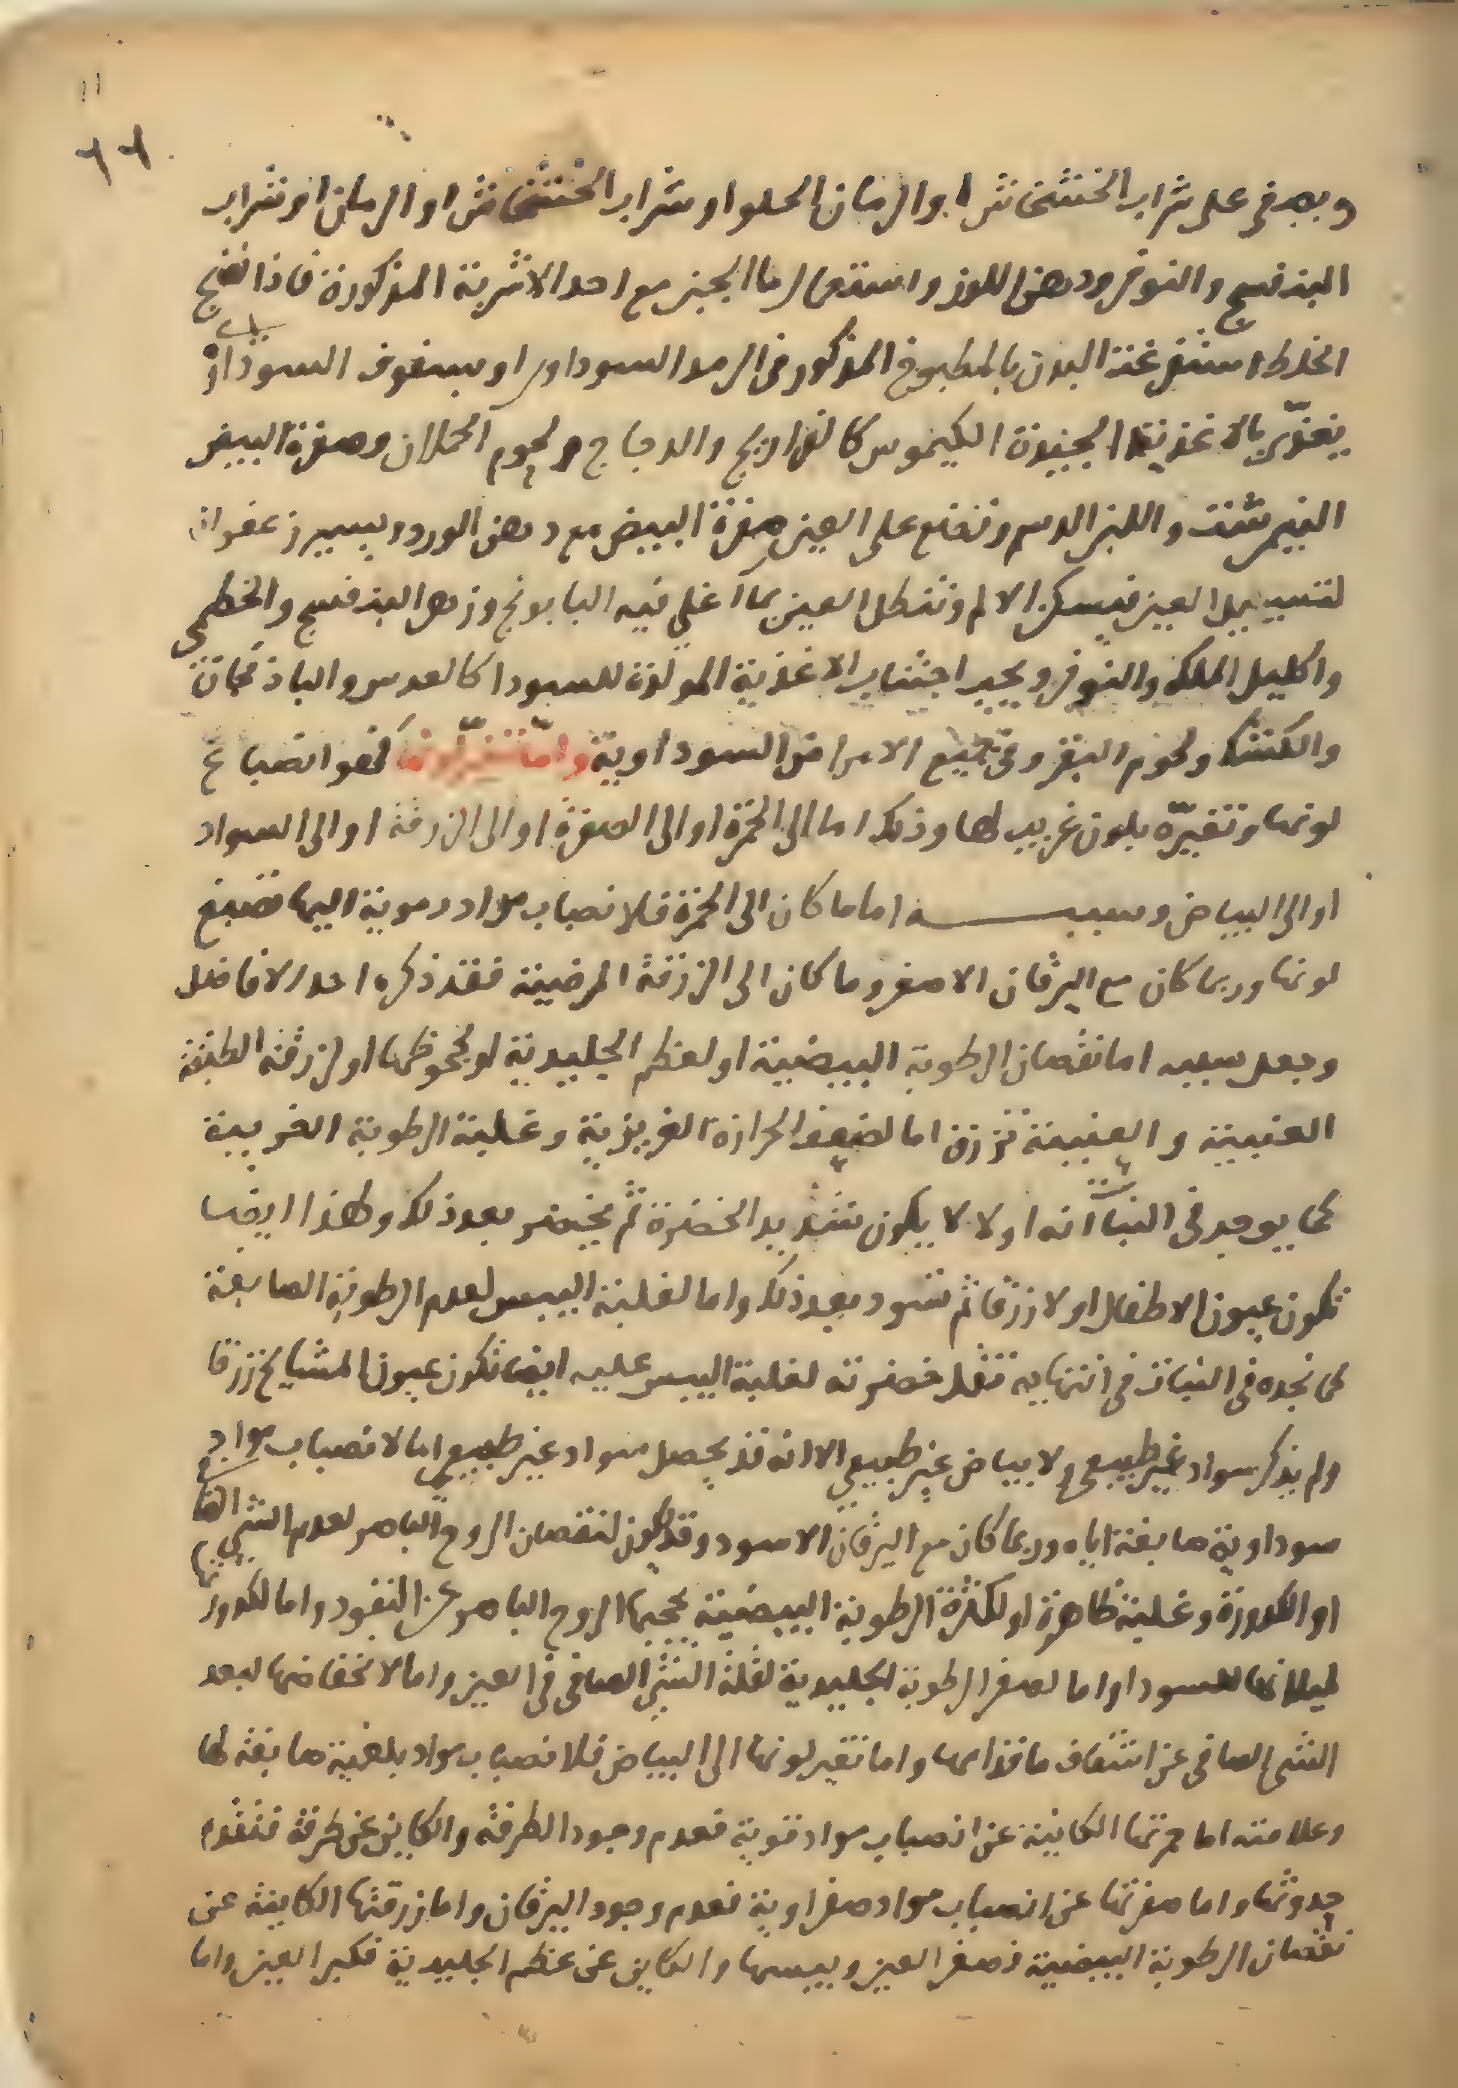 ٦٦
ويصفى على شراب الخشخاش او الرمان الحلو او شراب الخشخاش او الرمان او شراب
البنفسج والنوفر ودهن اللوز واستعمال ما الجبن مع احد الاشربة المذكورة فاذا نضج
الخلط استفرغت البدن بالمطبوخ المذكور في الرمد السوداوى او بسفوف السودا
يغذّى بالاغذية الجيدة الكيموس كالفراريج والدجاج ولحوم الحملان وصفرة البيض
النيمرشت واللبن الدسم وتضع على العين صفرة البيض مع دهن الورد ويسير زعفران
العين فيسكن الالم وتنطل العين بما اغلي فيه البابونج وزهر البنفسج والخطمى
واكليل الملك والنوفر ويجب اجتناب الاغذية المولدة للسودا كالعدس والباذنجان
والكشك ولحوم البقر وفي جميع الامراض السوداوية وامّا تغيّر لونها فهو انصباغ
لونها وتغيّره بلون غريب لها وذلك اما الى الحمرة او الى الصفرة او الى الزرقة او الى السواد
او الى البياض وسببه اما ما كان الى الحمرة فلانصباب مواد دموية اليها فتصبغ
لونها وربما كان مع اليرقان الاصفر وما كان الى الزرقة المرضية فقد ذكره احد الافاضل
وجعل سببه اما نقصان الرطوبة البيضية او لعظم الجليدية او لجحوظها او لزرقة الطبقة
العنبية والعنبية تزرق اما لضعف الحرارة الغريزية وغلبة الرطوبة الغريبة
كما يوجد في النبات انه اولا لا يكون شديد الخضرة ثم يخضر بعد ذلك ولهذا ايضا
تكون عيون الاطفال اولا زرقا ثم تسود بعد ذلك واما لغلبة اليبس لعدم الرطوبة الصابغة
كما نجده في النبات في انتهايه تقل خضرته لغلبة اليبس عليه ايضا تكون عيون المشايخ زرقا
ولم يذكر سواد غير طبيعي ولا بياض غير طبيعي الا انه قد يحصل سواد غير طبيعي اما لانصباب مواد
سوداوية صابغة اياه وربما كان مع اليرقان الاسود وقد يكون لنقصان الروح الباصر لعدم الشى الصافي
او الكدورة وغلبة ظاهرة او لكثرة الرطوبة البيضية بحجبها الروح الباصر عن النفوذ واما لكدورتها
لميلانها للسودا واما لصغر الرطوبة الجليدية لقلة الشى الصافي في العين واما لانخفاضها لبعد
الشى الصافي عن اشفاف ما قدامها واما تغير لونها الى البياض فلانصباب مواد بلغمية صابغة لها
وعلامته اما حمرتها الكاينة عن انصباب مواد دموية فعدم وجود الطرفة والكاين عن طرفة فتقدم
حدوثها واما صفرتها عن انصباب مواد صفراوية فعدم وجود اليرقان واما زرقتها الكاينة عن
نقصان الرطوبة البيضية فصغر العين ويبسها والكاين عن عظم الجليدية فكبر العين واما